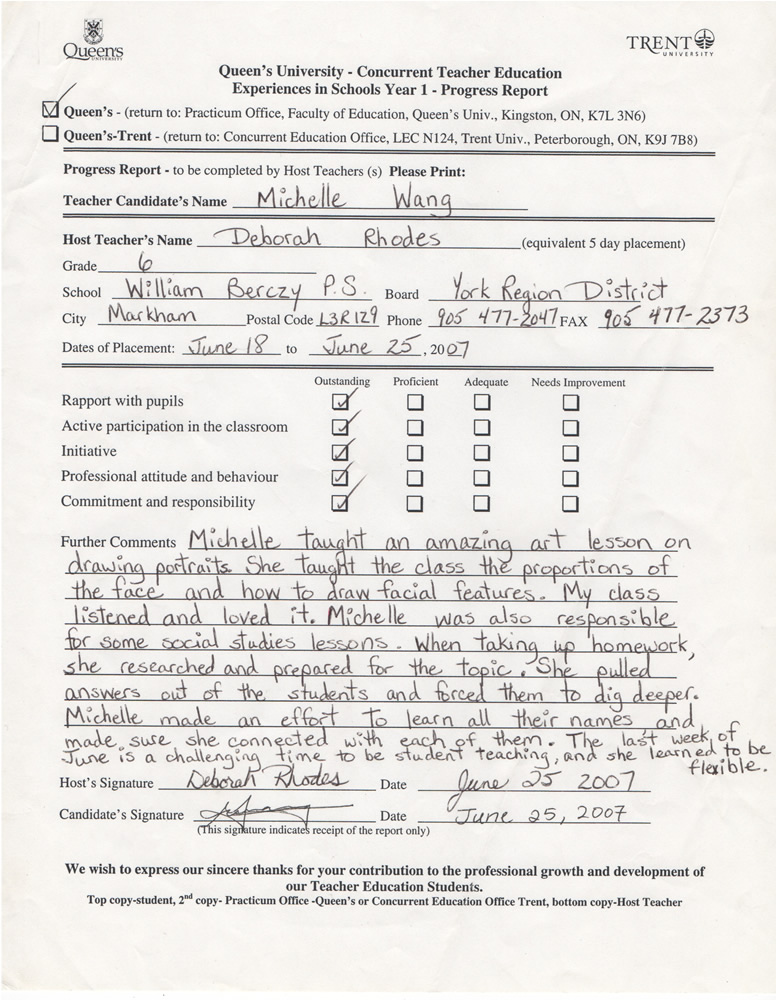 Queen's
UNIVERSITY
TRENT
UNIVERSITY
Queen's University - Concurrent Teacher Education
Experiences in Schools Year 1 - Progress Report
Queen's - (return to: Practicum Office, Faculty of Education, Queen's Univ., Kingston, ON, K7L 3N6)
Queen's-Trent - (return to: Concurrent Education Office, LEC N124, Trent Univ., Peterborough, ON, K9J 7B8)
Progress Report - to be completed by Host Teachers (s) Please Print:
Teacher Candidate's Name Michelle Wang
Host Teacher's Name Deborah Rhodes (equivalent 5 day placement)
Grade 6
School William Berczy P.S. Board York Region District
City Markham Postal Code L3R 1Z9 Phone 905 477-2047 FAX 905 477-2373
Dates of Placement: June 18 to June 25, 2007
Outstanding Proficient Adequate Needs Improvement
Rapport with pupils
Active participation in the classroom
Initiative
Professional attitude and behaviour
Commitment and responsibility
Further Comments Michelle taught an amazing art lesson on
drawing portraits. She taught the class the proportions of
the face and how to draw facial features. My class
listened and loved it. Michelle was also responsible
for some social studies lessons. When taking up homework,
she researched and prepared for the topic. She pulled
answers out of the students and forced them to dig deeper.
Michelle made an effort to learn all their names and
made sure she connected with each of them. The last week of
June is a challenging time to be student teaching, and she learned to be
flexible.
Host's Signature Deborah Rhodes Date June 25 2007
Candidate's Signature Date June 25, 2007
(This signature indicates receipt of the report only)
We wish to express our sincere thanks for your contribution to the professional growth and development of
our Teacher Education Students.
Top copy-student, 2nd copy- Practicum Office -Queen's or Concurrent Education Office Trent, bottom copy-Host Teacher